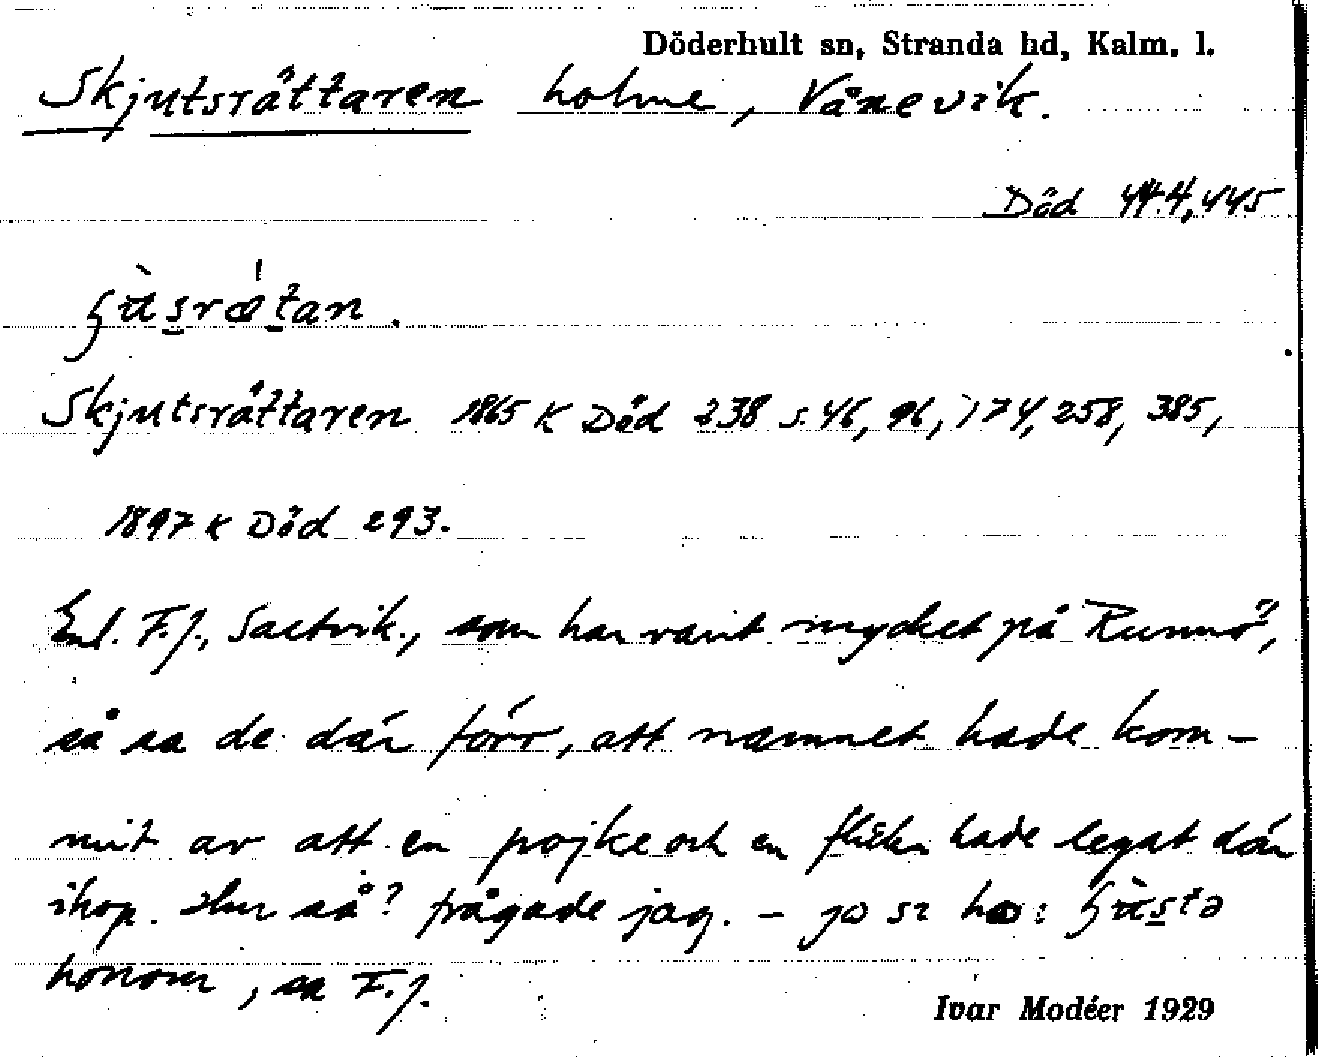 Döderhult sn, Stranda hd, Kalm. l.
Skjutsråttaren holme, Vånevik.
Död 444,445
ɧùsrǽtan.
Skjutsråttaren 1865 K Död 238 s. 46, 96, 174, 258, 385,
1897 K Död 293.
Enl. F.J., Saltvik., som har varit mycket på "Runnö",
så sa de där förr, att namnet hade kom-
mit av att en pojke och en flicka hade legat där
ihop. Hur så? frågade jag. – jo si ho: ɧùstə
honom, sa F.J.
Ivar Modéer 1929